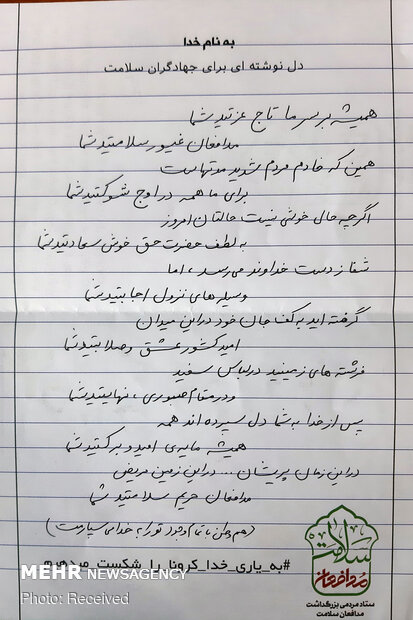 به نام خدا
دل نوشته ای برای جهادگران سلامت
همیشه بر سر ما تاج عزتید شما
مدافعان غیور سلامتید شما
همین که خادم مردم شدید مدتهاست
برای ما همه در اوج شوکتید شما
اگرچه حال خوشی نیست حالتان امروز
به لطف حضرت حق خوش سعادتید شما
شفا ز دست خداوند می رسد ، اما
وسیله های نزول اجابتید شما
گرفته اید به کف جان خود در این میدان
امید کشور عشق و صلابتید شما
فرشته های زمینید در لباس سفید
و در مقام صبوری ، نهایتید شما
پس از خدا به شما دل سپرده اند همه
همیشه مایه ی امید و برکتید شما
در این زمان پریشان ... در این زمین مریض
مدافعان حریم سلامتید شما
(هم وطن با تمام وجود تو را به خدا می سپارمت)
#به_یاری_خدا_کرونا_را_شکست_میدهیم
سلامت
مدافعان
ستاد مردمی بزرگداشت
مدافعان سلامت
MEHR NEWSAGENCY
Photo: Received